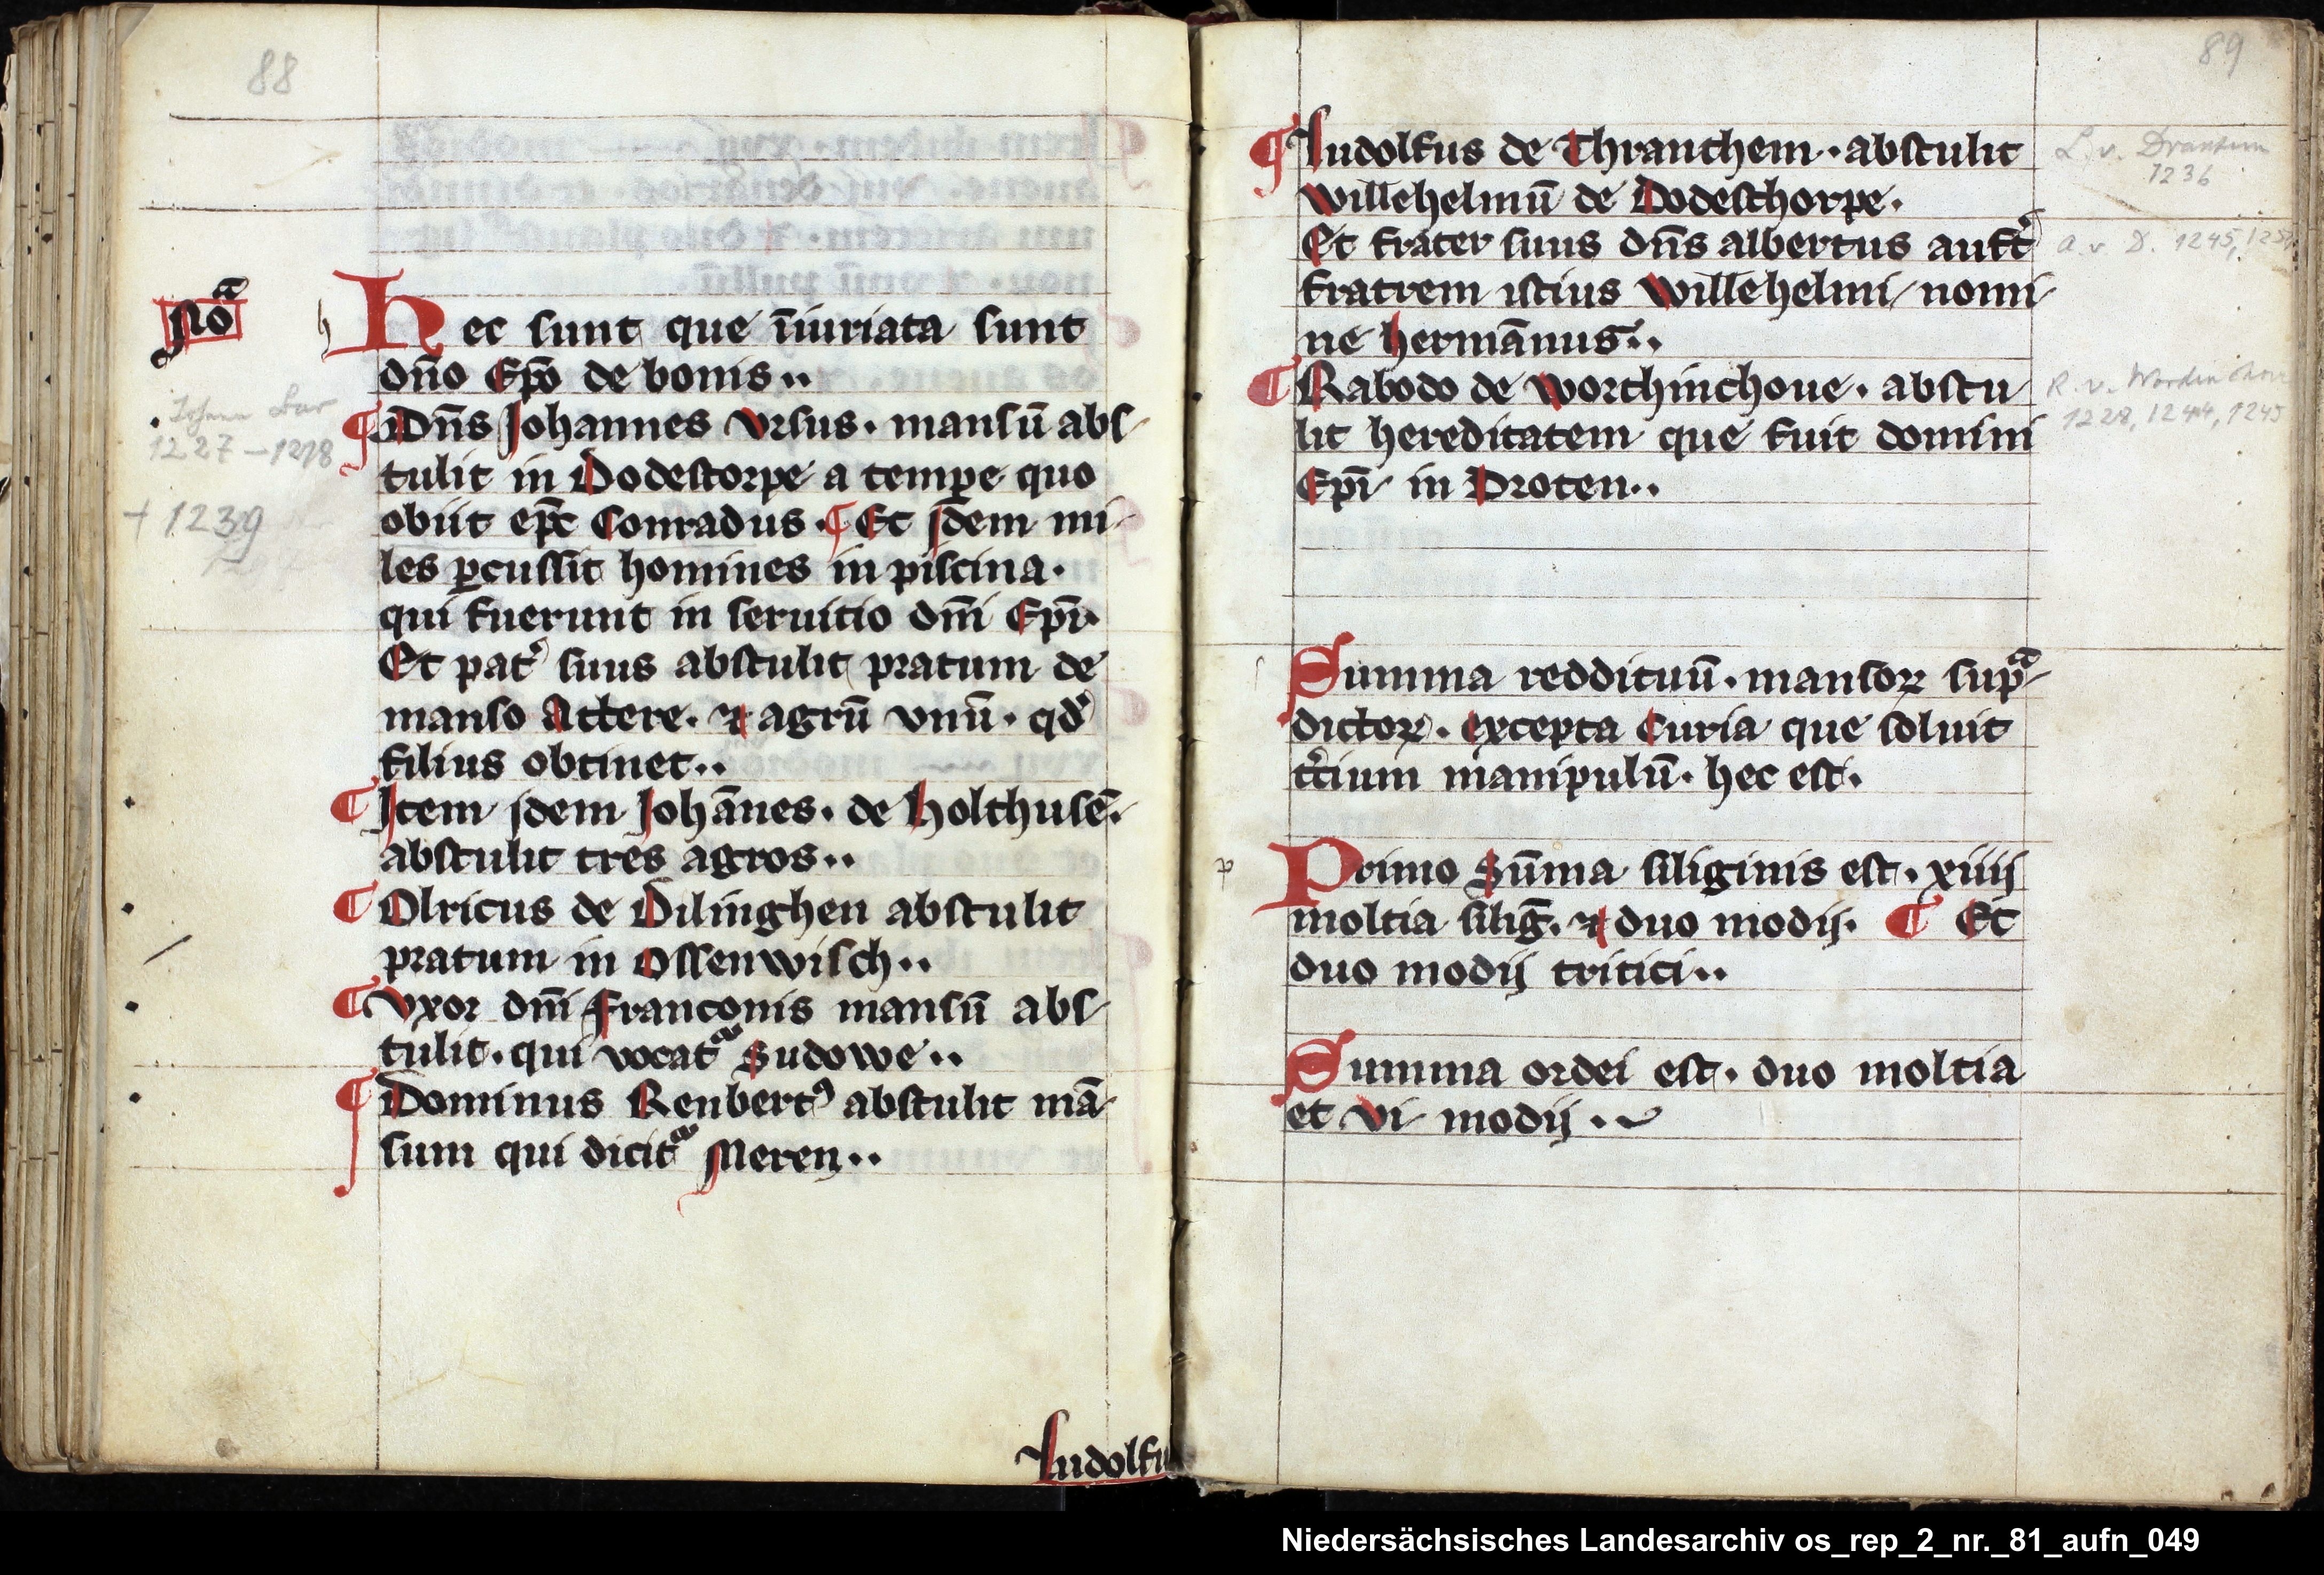 88
Noᵃ
Hec sunt que īiuriata sunt
dn̄o Ep̄o de bonis..
¶ Dn̄s Johannes Vrsus. mansū abs-
tulit in Dodestorpe a temp̱e quo
obiit ep̄c Conradus. ¶ Et jdem mi-
les ꝑcussit homines in piscina.
qui fuerunt in seruitio dn̄i Ep̄i.
Et pat͛ suus abstulit pratum de
manso Attere. ⁊ agrū vnū. qd̛
filius obtinet..
¶ Item jdem Johānes. de Holthusē.
abstulit tres agros..
¶ Olricus de Dilinghen abstulit
pratum in Ossenwisch..
¶ Vxor dn̄i Franconis mansū abs-
tulit. qui vocatᷣ Sudowe..
¶ Dominus Renbertꝰ abstulit mā-
sum qui dicitᷣ Meren..
Ludolfu
1227 – 1278
+ 1239
89
¶ Ludolfus de Thranthem. abstulit
Willehelmū de Dodesthorpe.
Et frater suus dn̄s albertus auft͛
fratrem istius Willehelmi nomi-
ne hermānus..
¶ Rabodo de Worthinchoue. abstu-
lit hereditatem que fuit domini
Ep̄i in Droten..
Summa reddituū. mansoꝝ supᵃ-
dictoꝝ. excepta Curia que soluit
t͛cium manipulū. hec est.
Primo Sūma siliginis est. xiiij
moltia siliḡ. ⁊ duo modij. ¶ Et
duo modij tritici..
Summa ordei est. duo moltia
et vi modij.
L. v. Drantum
1236
a. v. D. 1245,
R. v.
1228, 1244, 1245
Niedersächsisches Landesarchiv os_rep_2_nr._81_aufn_049